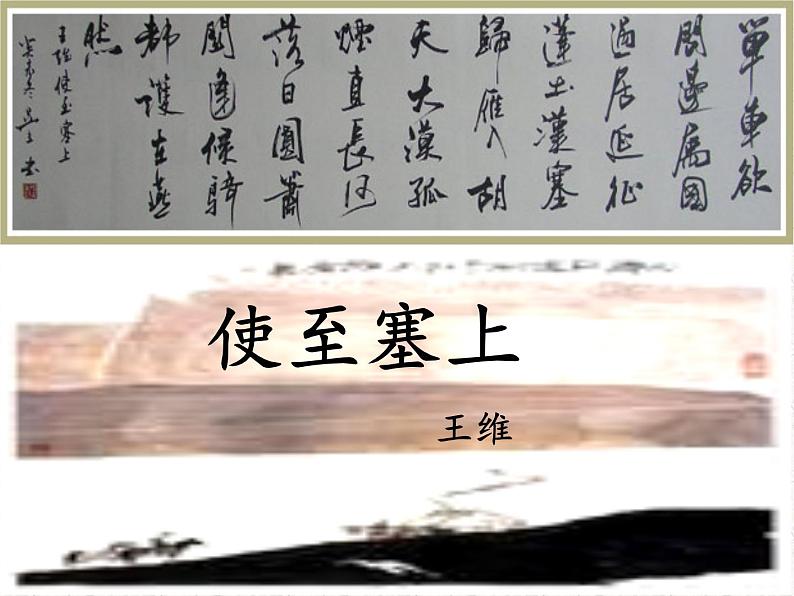 單車欲
問邊屬國
過居延征
蓬出漢塞
歸雁入胡
天大漠孤
煙直長河
落日圓蕭
關逢候騎
都護在燕
然
王維使至塞上
使至塞上
王维